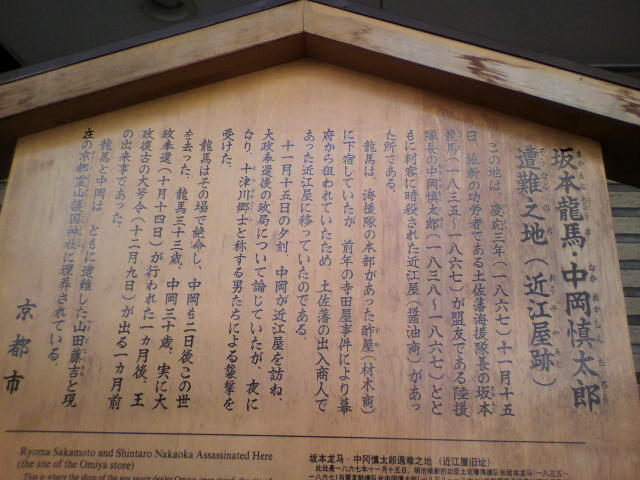 坂本龍馬・中岡慎太郎
遭難之地（近江屋跡）
この地は、慶応三年（一八六七）十一月十五
日、維新の功労者である土佐藩海援隊長の坂本
龍馬（一八三五～一八六七）が盟友である陸援
隊長の中岡慎太郎（一八三八～一八六七）とと
もに刺客に暗殺された近江屋（醤油商）があっ
た所である。
龍馬は、海援隊の本部があった酢屋（材木商）
に下宿していたが、前年の寺田屋事件により幕
府から狙われていたため、土佐藩の出入商人で
あった近江屋に移っていたのである。
十一月十五日の夕刻、中岡が近江屋を訪ね、
大政奉還後の政局について論じていたが、夜に
なり、十津川郷士と称する男たちによる襲撃を
受けた。
龍馬はその場で絶命し、中岡も二日後この世
を去った。龍馬三十三歳、中岡三十歳、実に大
政奉還（十月十四日）が行われた一カ月後、王
政復古の大号令（十二月九日）が出る一カ月前
の出来事であった。
龍馬と中岡は、ともに遭難した山田藤吉と現
在の京都霊山護国神社に埋葬されている。
京都市
Ryoma Sakamoto and Shintaro Nakaoka Assassinated Here
(the site of the Omiya store)
This is where the shop of the soy sauce dealer Omiya once stood, the site of
坂本龙马・中冈慎太郎遇难之地（近江屋旧址）
此处是一八六七年十一月十五日，明治维新的功臣土佐藩海援队长坂本龙马（一八三五－